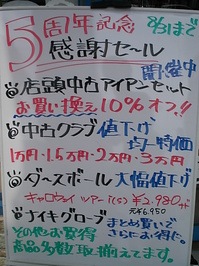 5周年記念 8/31まで
感謝セール 開催中
店頭中古アイアンセット
お買い換え10%オフ!!
中古クラブ値下げ
均一特価
1万円・1.5万円・2万円・3万円
ボール大幅値下げ
キャロウェイ ツアー ¥2,980
元¥6,950
ナイキグローブ まとめ買いで
さらにお得に。
その他お買得
商品多数取揃えてます。